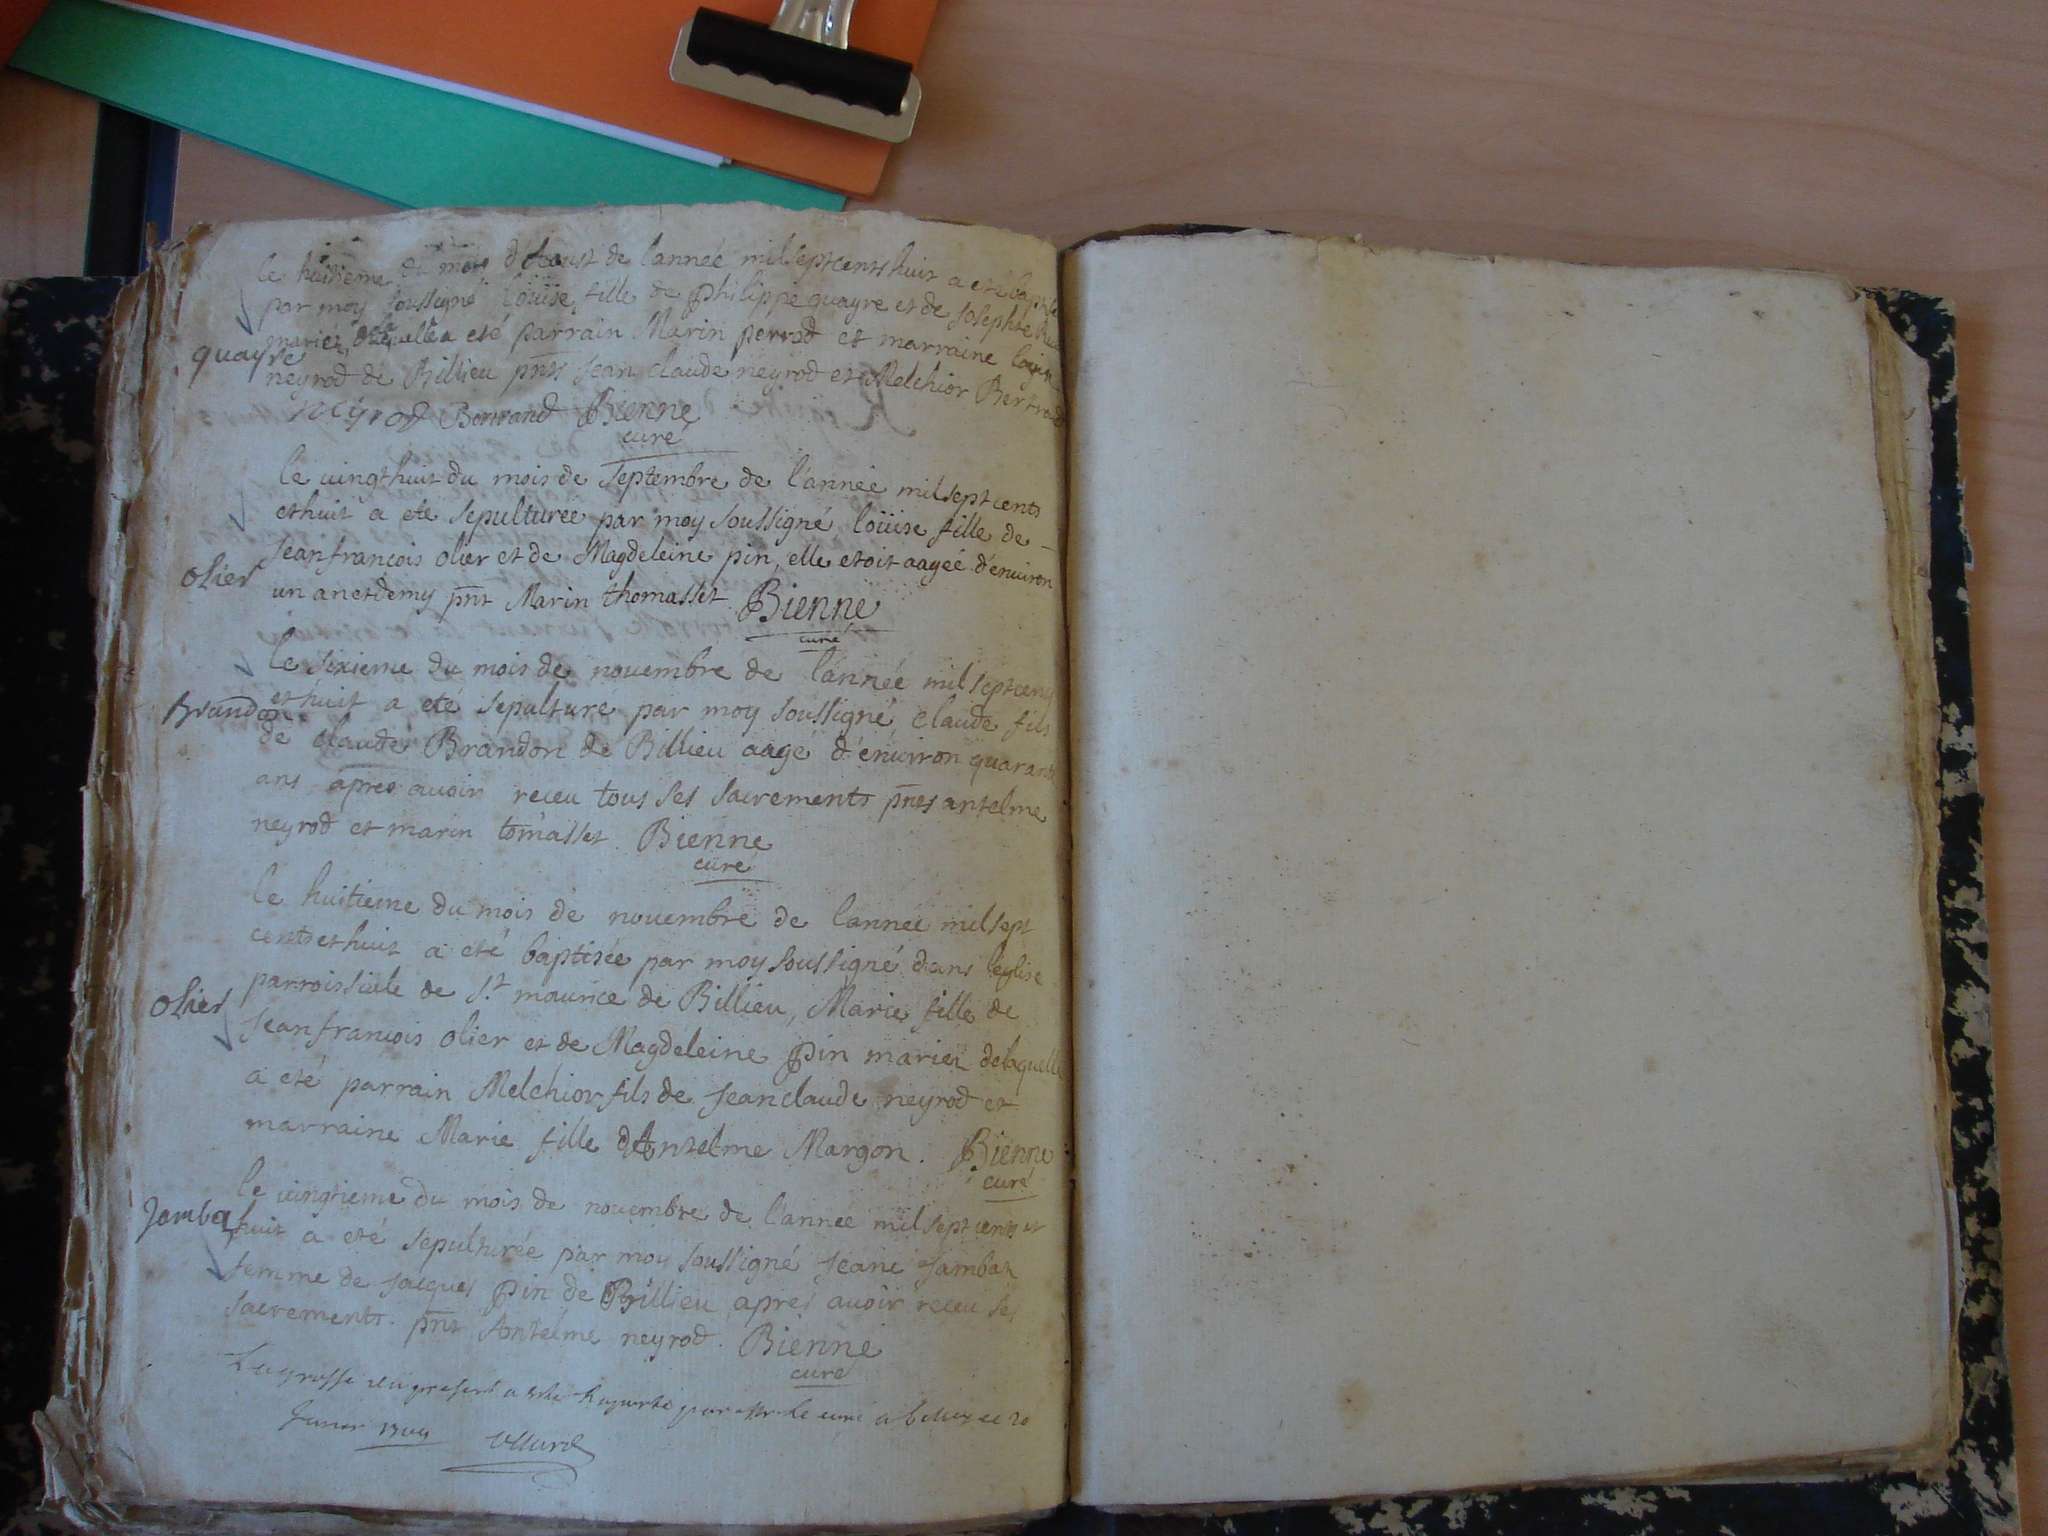 le huitieme du mois d'Aoust de l'année mil sept cents huit a eté baptisée
par moy soussigné loüise fille de philippe quayre et de Josephte
quayre
mariez, de laquelle a eté parrain Marin perrod et marraine
neyrod de Billieu pnts Jean claude neyrod et Melchior Bertrand
neyrod Bertrand Bienne
curé
le vingthuit du mois de septembre de l'année mil sept cents
ethuit a eté sepulturée par moy soussigné loüise fille de
olier
Jeanfrançois olier et de Magdeleine pin, elle etoit aagée d'environ
un anetdemy pnt Marin thomasset Bienne
curé
le sixieme du mois de novembre de l'année mil sept cents
Brandon
ethuit a eté sepulturé par moy soussigné claude fils
de claude Brandon de Billieu aagé d'environ quarante
ans apres avoir receu tous ses sacrements pnts antelme
neyrod et marin tomasset. Bienne
curé
le huitieme du mois de novembre de l'année mil sept
centsethuit a eté baptisée par moy soussigné dans l'eglise
parroissiale de st maurice de Billieu, Marie fille de
olier
Jeanfrançois olier et de Magdeleine pin mariez delaquelle
a eté parrain Melchior fils de Jeanclaude neyrod et
marraine Marie fille d'Antelme Margon. Bienne
curé
le vingtieme du mois de novembre de l'année mil sept cents et
Jambaz
huit a eté sepulturée par moy soussigné Jeane Jambaz
femme de Jacques pin de Billieu, apres avoir receu ses
sacrements. pnt Antelme neyrod. Bienne
curé
La grosse du present a esté par Mr le curé a ce 20